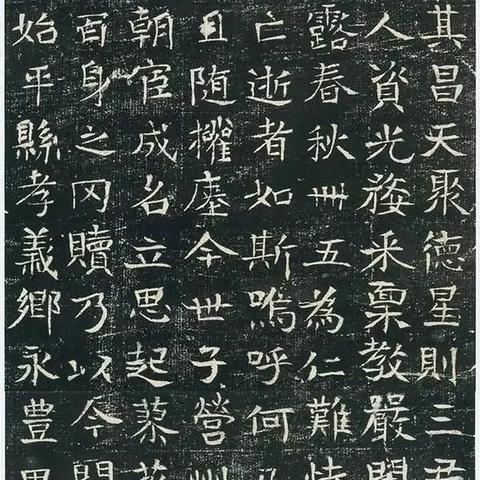 其昌天聚德星則三君
人資光發釆稟教嚴閨
露春秋卌五為仁難恃
亡逝者如斯嗚呼何乃
且隨櫂塵今世子營州
朝宦成名立思起蓼莪
百身之罔贖乃以今開
始平縣孝義鄉永豐里